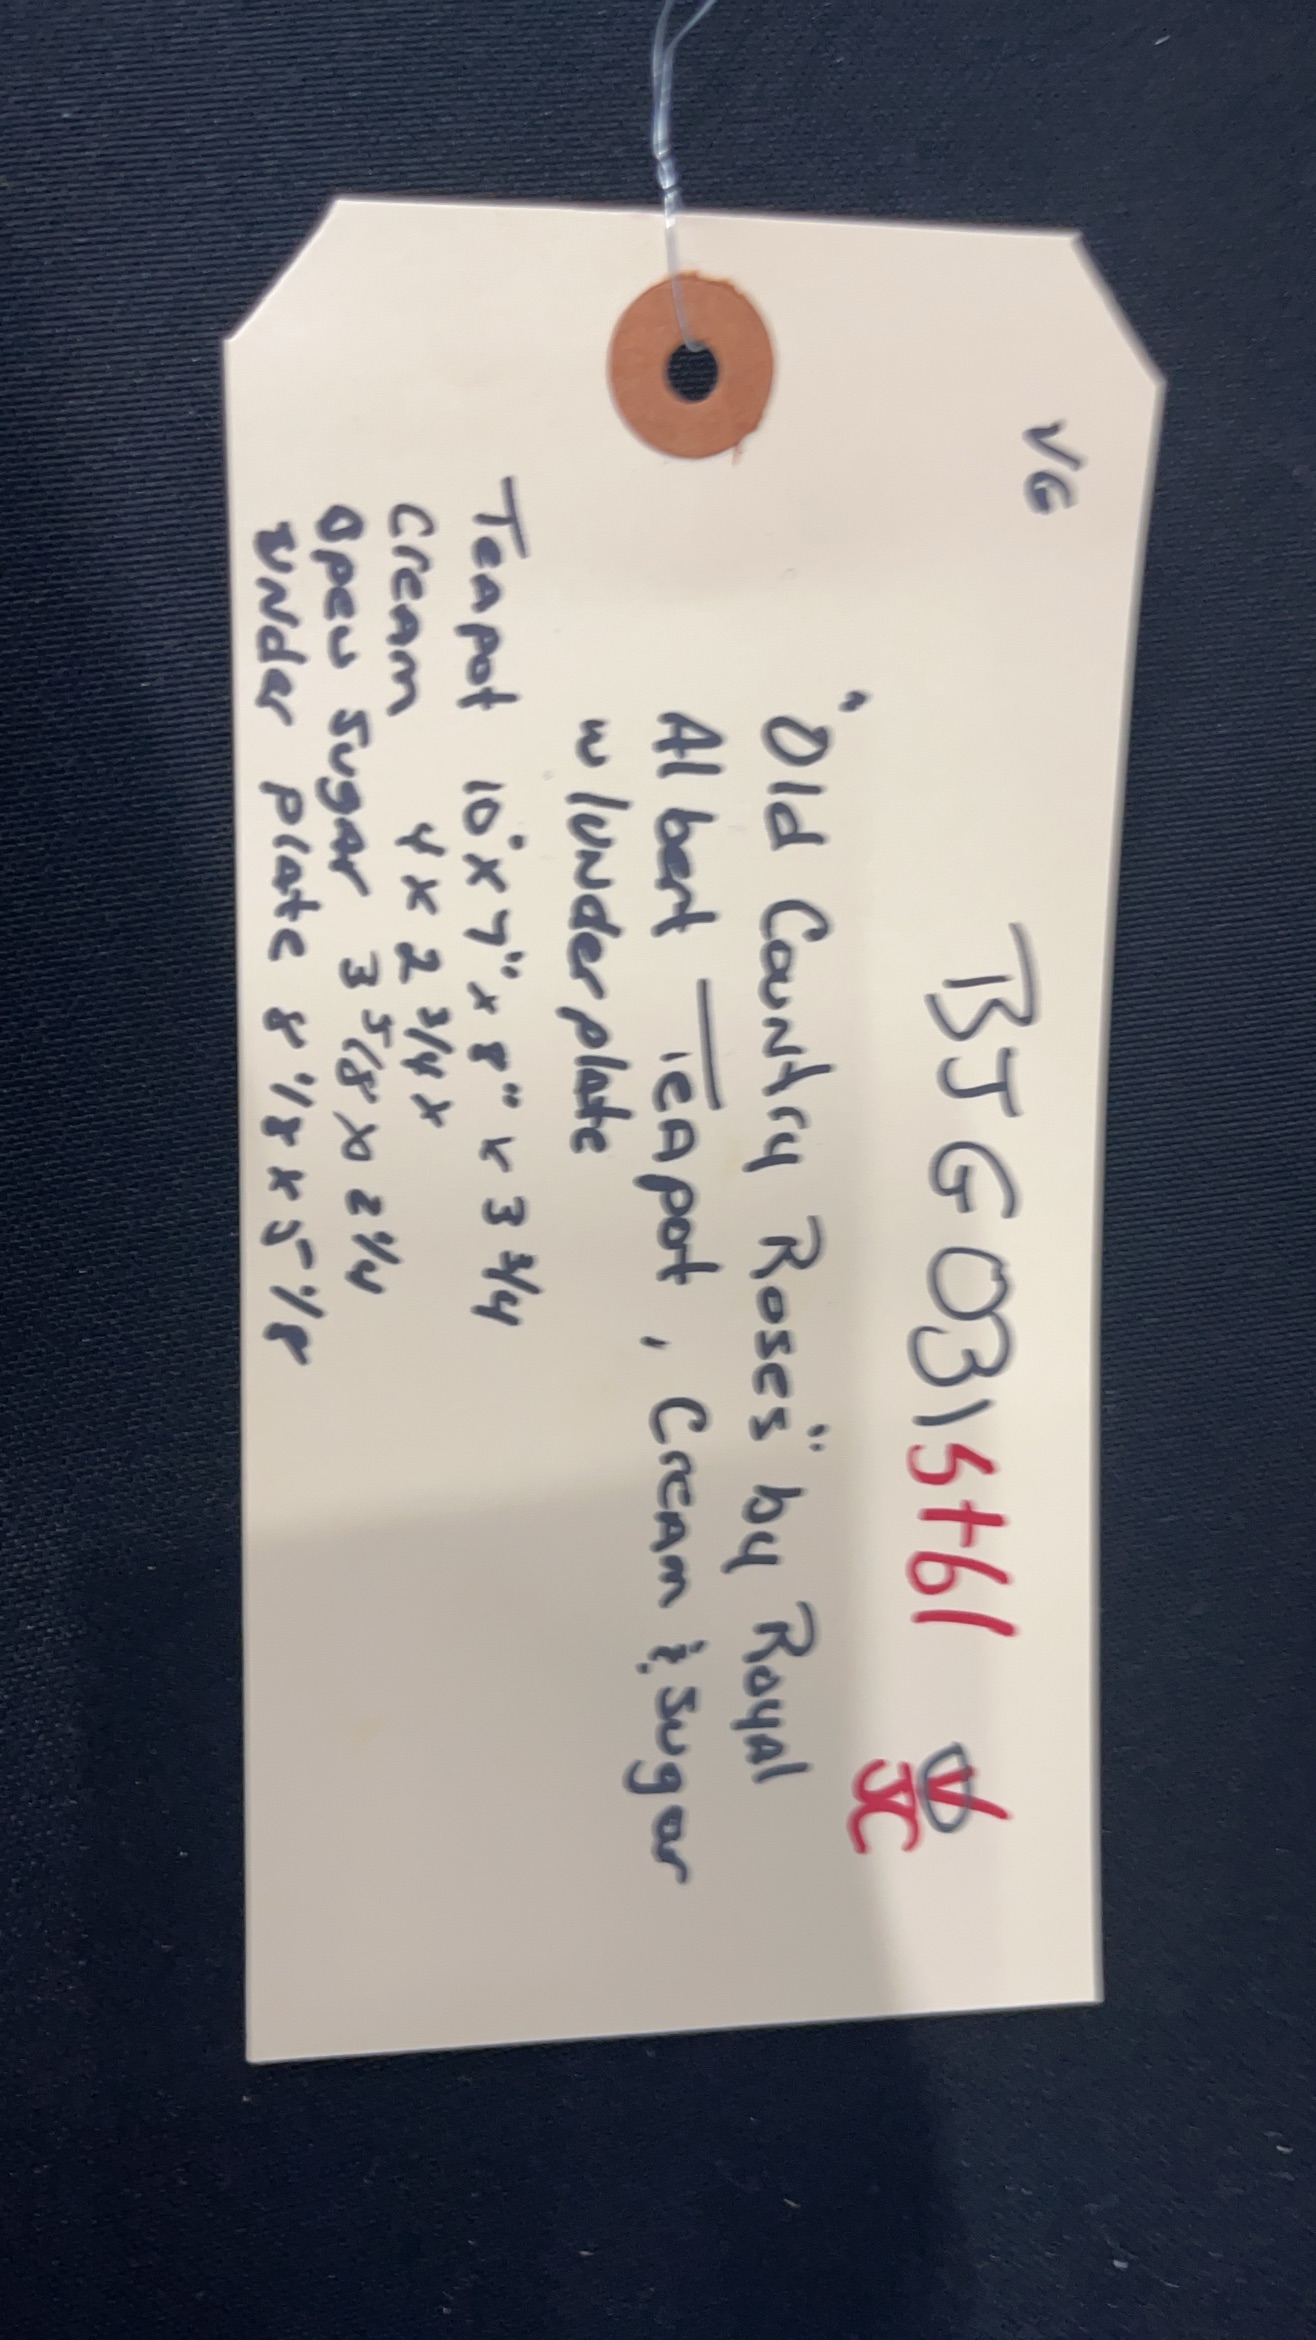 VG
BJG031St61 V
JC
"Old Country Roses" by Royal
Albert Teapot, Cream & Sugar
w/underplate
Teapot 10" x 7" x 8" x 3 3/4
Cream 4 x 2 3/4 x
Open Sugar 3 5/8 x 2 1/4
Under plate 8 1/8 x 5 1/8